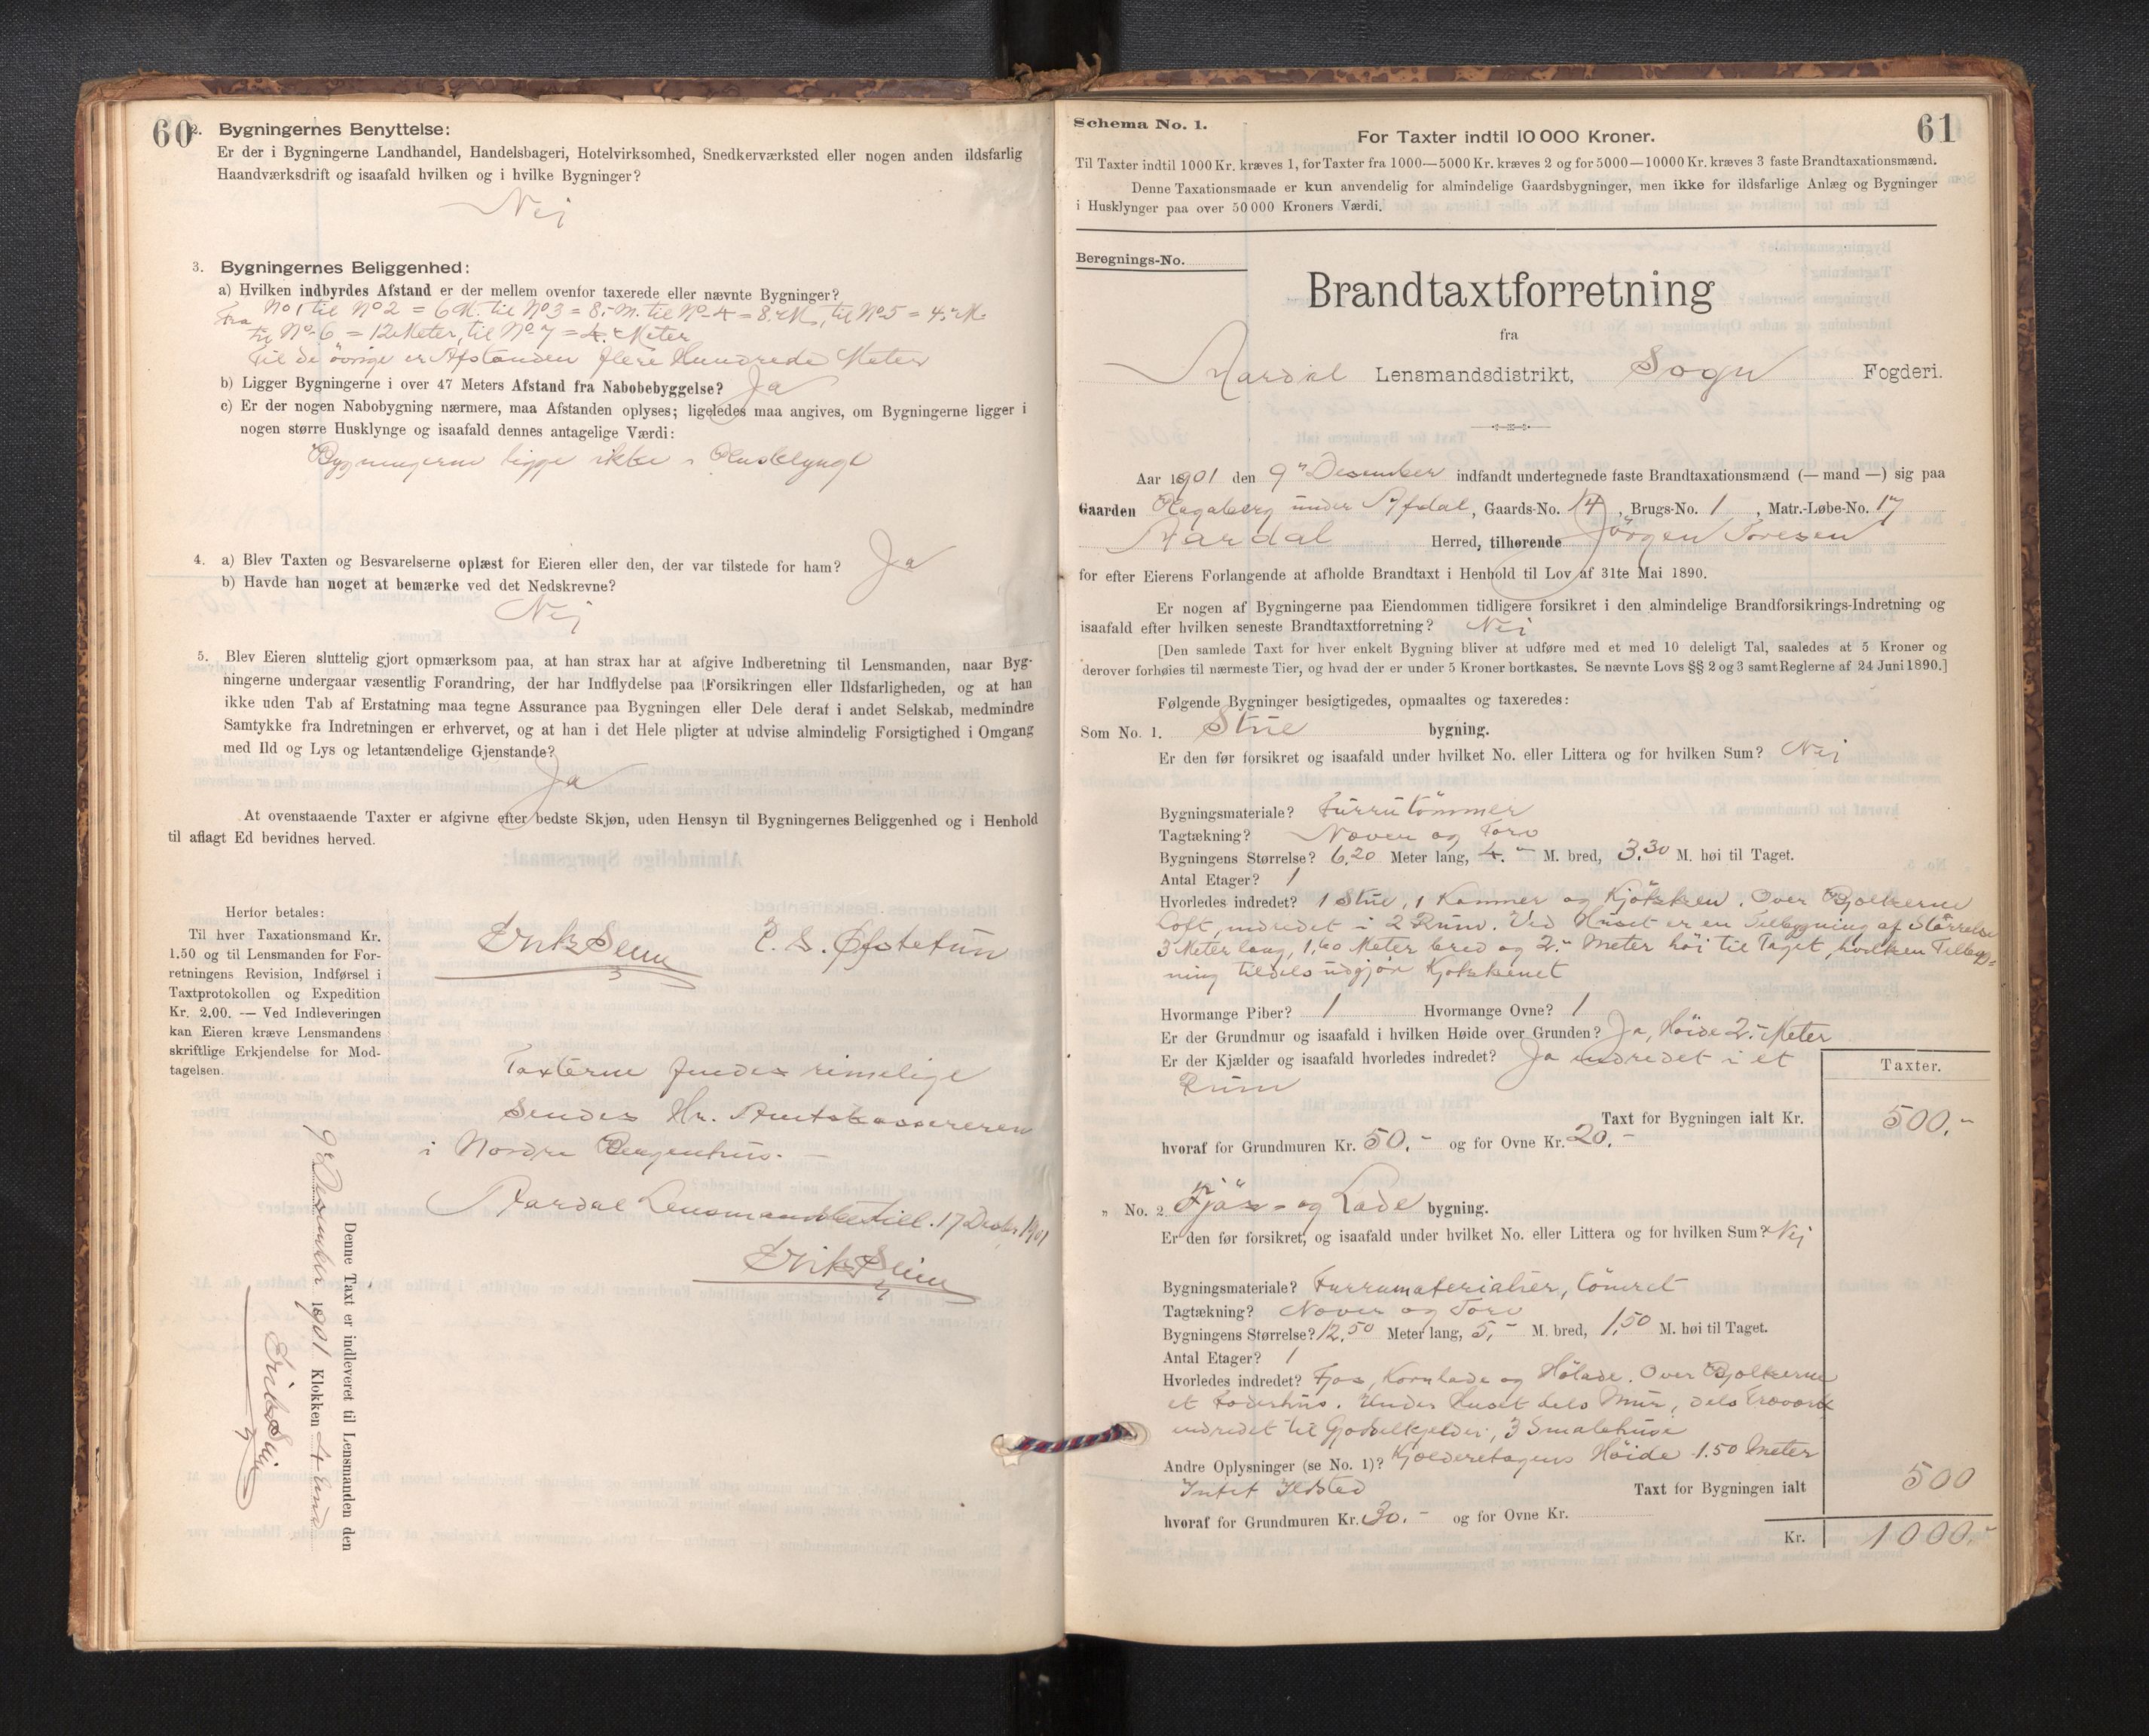 60
2. Bygningernes Benyttelse:
Er der i Bygningerne Landhandel, Handelsbageri, Hotelvirksomhed, Snedkerværksted eller nogen anden ildsfarlig
Haandværksdrift og isaafald hvilken og i hvilke Bygninger?
Nei
3. Bygningernes Beliggenhed:
a) Hvilken indbyrdes Afstand er der mellem ovenfor taxerede eller nævnte Bygninger?
Fra No 1 til No 2 = 6 M. til No 3 = 8,- M. til No 4 = 8,- M, til No 5 = 4,- M.
til No 6 = 12 Meter, til No 7 = 4,- Meter
Til de övrige er Afstanden flere Hundrede Meter
b) Ligger Bygningerne i over 47 Meters Afstand fra Nabobebyggelse? Ja
c) Er der nogen Nabobygning nærmere, maa Afstanden oplyses; ligeledes maa angives, om Bygningerne ligger i
nogen større Husklynge og isaafald dennes antagelige Værdi:
Bygningerne ligge ikke i Husklynge
4. a) Blev Taxten og Besvarelserne oplæst for Eieren eller den, der var tilstede for ham? Ja
b) Havde han noget at bemærke ved det Nedskrevne?
Nei
5. Blev Eieren sluttelig gjort opmærksom paa, at han strax har at afgive Indberetning til Lensmanden, naar Byg-
ningerne undergaar væsentlig Forandring, der har Indflydelse paa Forsikringen eller Ildsfarligheden, og at han
ikke uden Tab af Erstatning maa tegne Assurance paa Bygningen eller Dele deraf i andet Selskab, medmindre
Samtykke fra Indretningen er erhvervet, og at han i det Hele pligter at udvise almindelig Forsigtighed i Omgang
med Ild og Lys og letantændelige Gjenstande?
Ja
At ovenstaaende Taxter er afgivne efter bedste Skjøn, uden Hensyn til Bygningernes Beliggenhed og i Henhold
til aflagt Ed bevidnes herved.
Herfor betales:
Til hver Taxationsmand Kr.
1.50 og til Lensmanden for For-
retningens Revision, Indførsel i
Taxtprotokollen og Expedition
Kr. 2.00. — Ved Indleveringen
kan Eieren kræve Lensmandens
skriftlige Erkjendelse for Mod-
tagelsen.
Erik Seim E. S. Øfstetun
Taxterne findes rimelige
Sendes Hr. Amtskassereren
i Nordre Bergenhus.
Aardal Lensmandsbestill. 17 Decbr 1901
Erik Seim
Denne Taxt er indleveret til Lensmanden den
9 Desember 1901 Klokken 4 Emd
Erik Seim
61
Schema No. 1.
For Taxter indtil 10 000 Kroner.
Til Taxter indtil 1000 Kr. kræves 1, for Taxter fra 1000—5000 Kr. kræves 2 og for 5000—10000 Kr. kræves 3 faste Brandtaxationsmænd.
Denne Taxationsmaade er kun anvendelig for almindelige Gaardsbygninger, men ikke for ildsfarlige Anlæg og Bygninger
i Husklynger paa over 50 000 Kroners Værdi.
Beregnings-No.
Brandtaxtforretning
fra
Aardal Lensmandsdistrikt, Sogn Fogderi.
Aar 1901 den 9 Desember indfandt undertegnede faste Brandtaxationsmænd (— mand —) sig paa
Gaarden Hagaberg under Afdal, Gaards-No. 14, Brugs-No. 1, Matr.-Løbe-No. 17
Aardal Herred, tilhørende Jörgen Toresen
for efter Eierens Forlangende at afholde Brandtaxt i Henhold til Lov af 31te Mai 1890.
Er nogen af Bygningerne paa Eiendommen tidligere forsikret i den almindelige Brandforsikrings-Indretning og
isaafald efter hvilken seneste Brandtaxtforretning? Nei
[Den samlede Taxt for hver enkelt Bygning bliver at udføre med et med 10 deleligt Tal, saaledes at 5 Kroner og
derover forhøies til nærmeste Tier, og hvad der er under 5 Kroner bortkastes. Se nævnte Lovs §§ 2 og 3 samt Reglerne af 24 Juni 1890.]
Følgende Bygninger besigtigedes, opmaaltes og taxeredes:
Som No. 1. Stue bygning.
Er den før forsikret og isaafald under hvilket No. eller Littera og for hvilken Sum? Nei
Bygningsmateriale? Furrutömmer
Tagtækning? Næver og Torv
Bygningens Størrelse? 6,20 Meter lang, 4,- M. bred, 3,30 M. høi til Taget.
Antal Etager? 1
Hvorledes indredet? 1 Stue, 1 Kammer og Kjökken. Over Bjelkerne
Loft, indredet i 2 Rum. Ved Huset er en Tilbygning af Störrelse
3 Meter lang, 1,60 Meter bred og 2,- Meter höi til Taget, hvilken Tilbyg-
ning tildels udgjör Kjökkenet
Hvormange Piber? 1 Hvormange Ovne? 1
Er der Grundmur og isaafald i hvilken Høide over Grunden? Ja, Höide 2,- Meter
Er der Kjælder og isaafald hvorledes indredet? Ja indredet i et
Rum
Taxter.
Taxt for Bygningen ialt Kr. 500,-
hvoraf for Grundmuren Kr. 50,- og for Ovne Kr. 20,-
" No. 2. Fjös- og Lade bygning.
Er den før forsikret, og isaafald under hvilket No. eller Littera og for hvilken Sum? Nei
Bygningsmateriale? Furrumaterialier, tömret
Tagtækning? Næver og Torv
Bygningens Størrelse? 12,50 Meter lang, 5,- M. bred, 1,50 M. høi til Taget.
Antal Etager? 1
Hvorledes indredet? Fjös, Kornlade og Hölade. Over Bjelkerne
et Foderhus. Under Huset dels Mur, dels
indredet til Gjödselkjelder, 3 Smalehuse
Andre Oplysninger (se No. 1)? Kjelderetagens Höide 1.50 Meter
Intet Ildsted Taxt for Bygningen ialt 500
hvoraf for Grundmuren Kr. 30,- og for Ovne Kr.
Kr. 1000,-